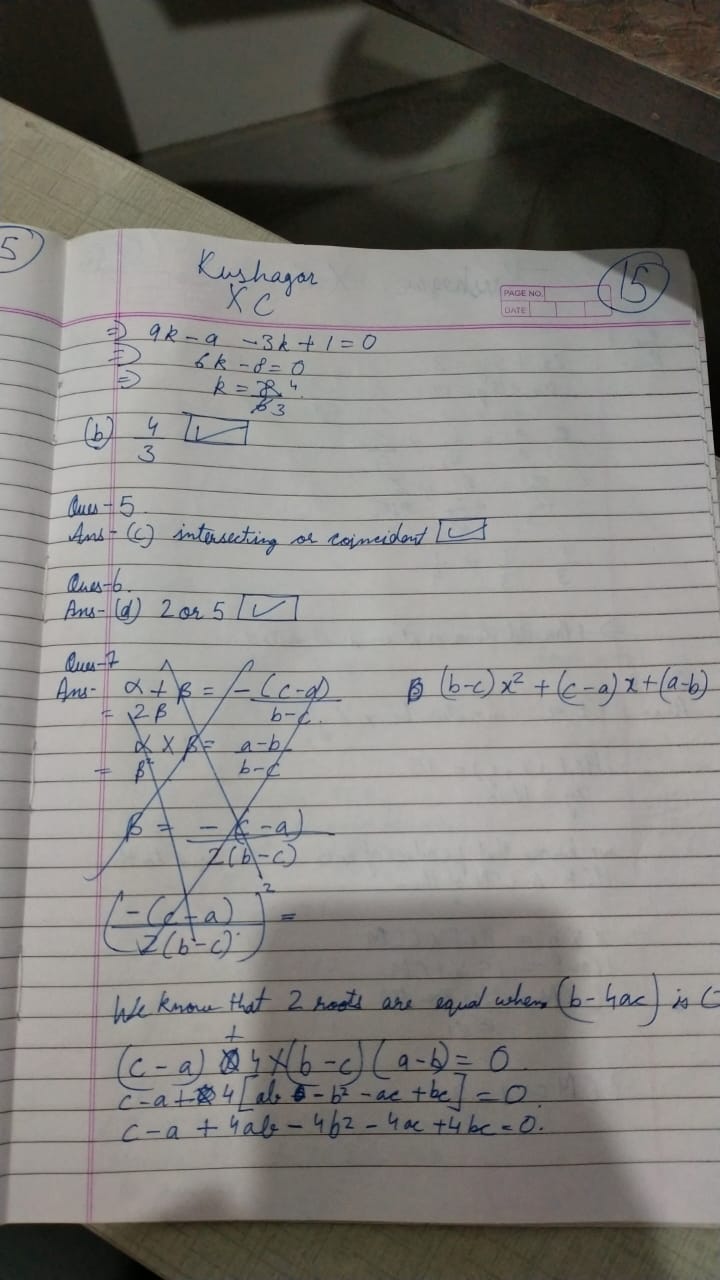 5
Kushagar
X C
PAGE NO.
DATE
15
=) 9k - 9 - 3k + 1 = 0
=) 6k - 8 = 0
=) k = 8 4
6 3
(b) 4/3
Ques - 5.
Ans - (c) intersecting or coincident
Ques - 6.
Ans - (d) 2 or 5
Ques - 7
Ans - α + β = -(c-a)/b-c
(b-c)x² + (c-a)x + (a-b)
= 2β
α × β = a-b/b-c
= β²
β = -(c-a)/2(b-c)
(-(c-a)/2(b-c))² =
We know that 2 roots are equal when (b - 4ac) is
(c - a) + 4 × (b - c) (a - b) = 0
c - a + 4 [ab - b² - ac + bc] = 0
c - a + 4ab - 4b² - 4ac + 4bc = 0.